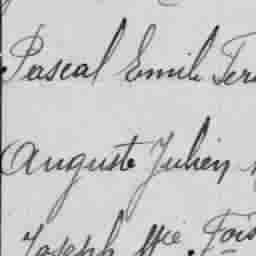 Pascal Emile Ter
Auguste Julien
Joseph